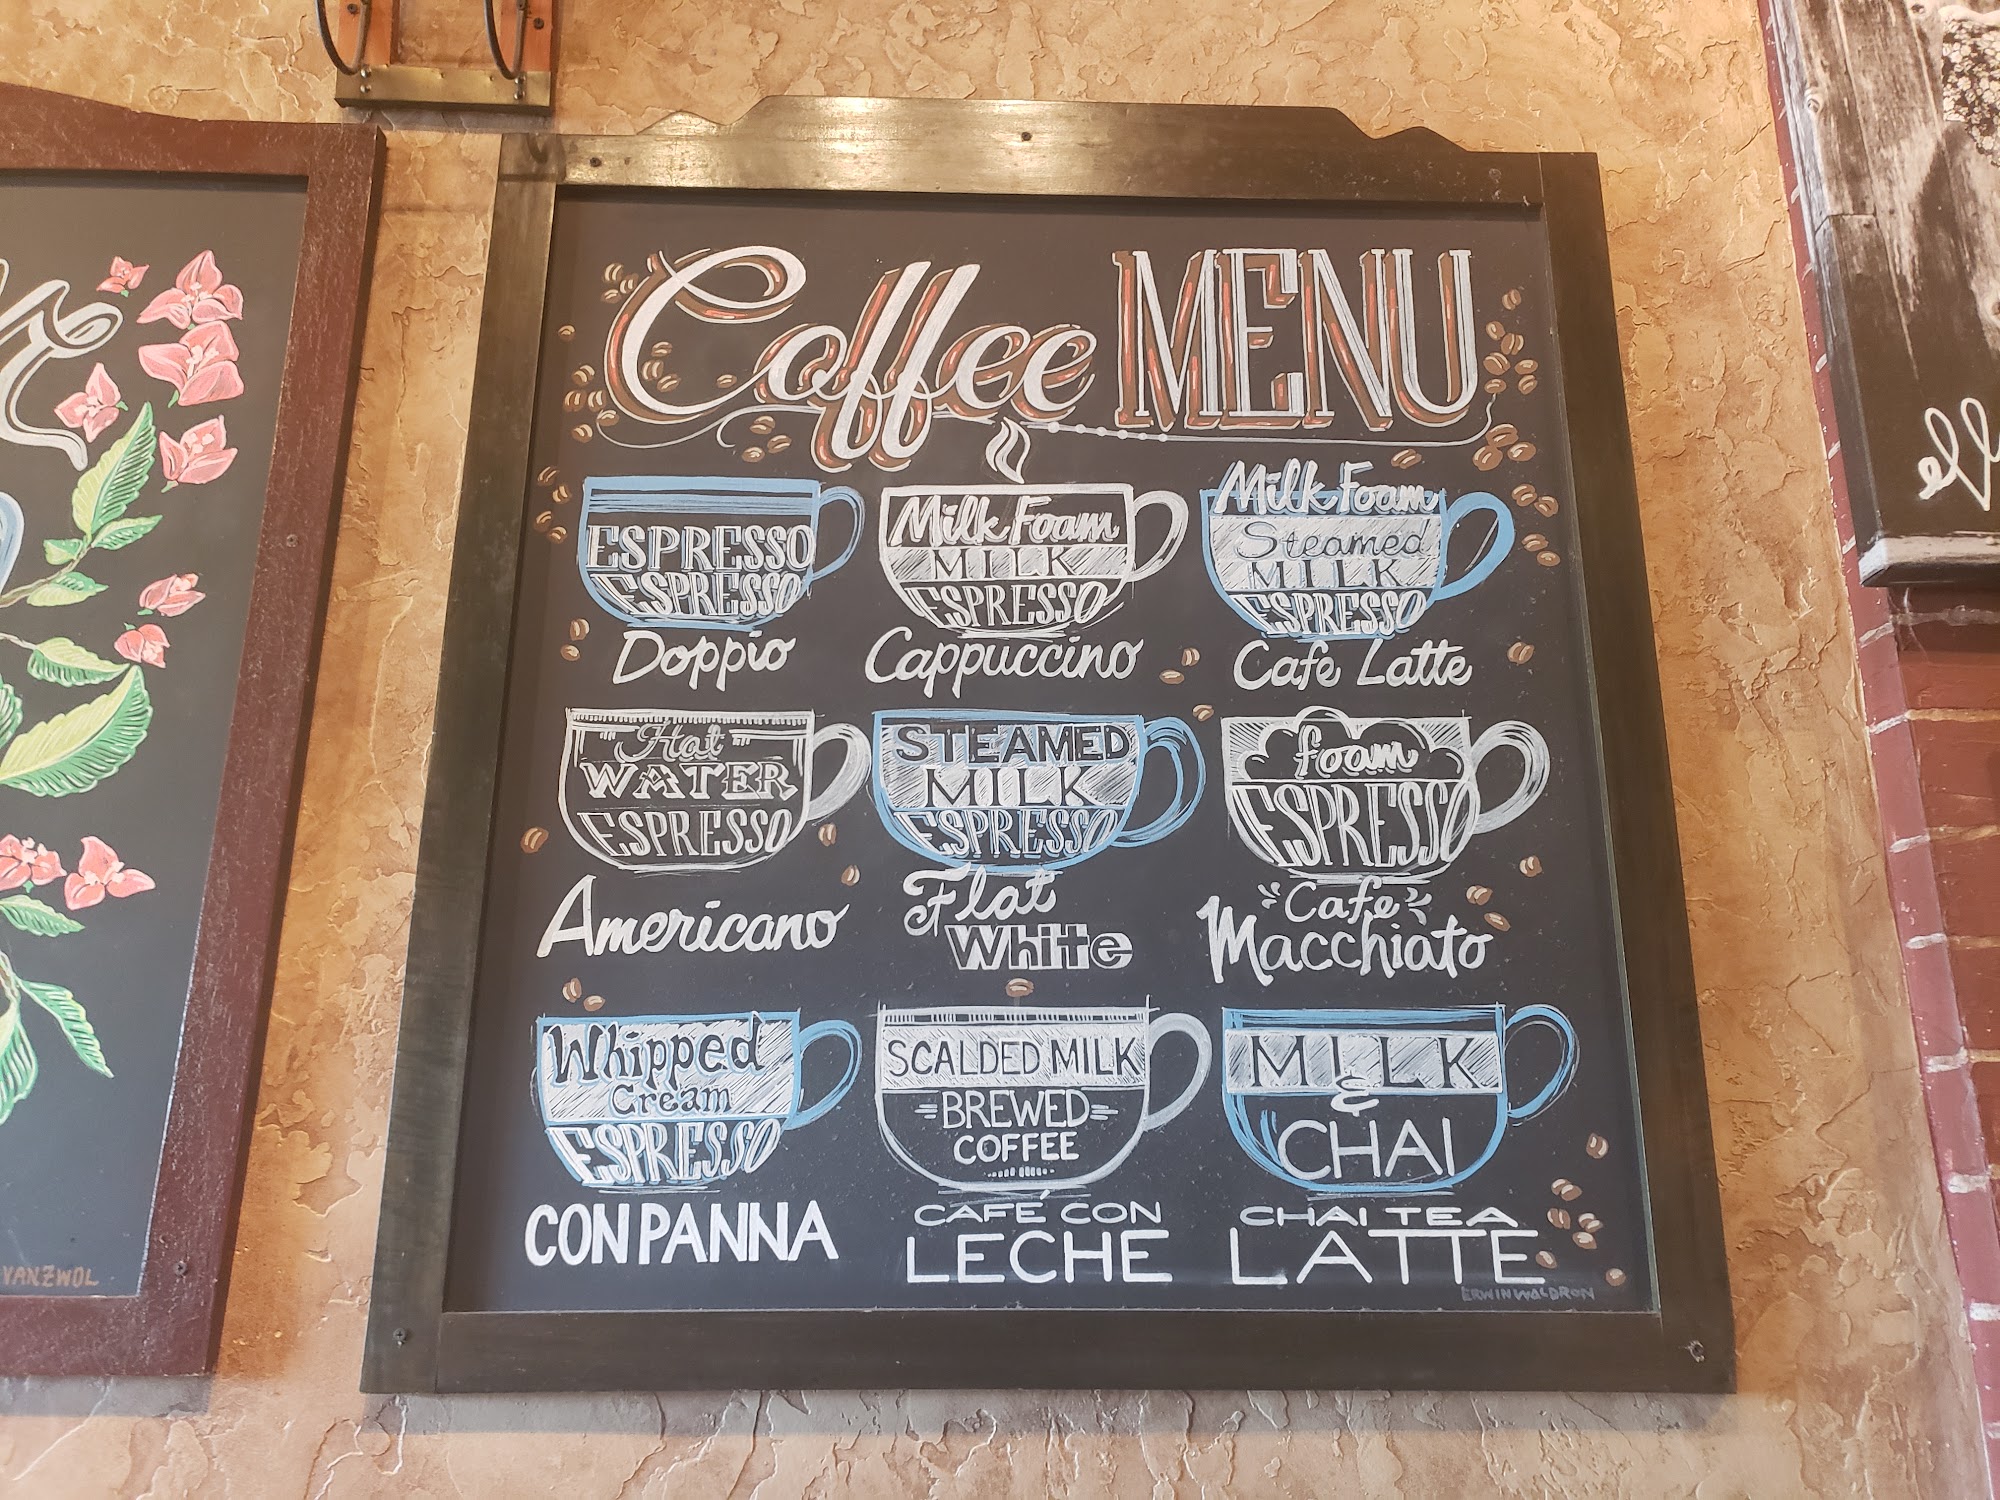 Coffee MENU
ESPRESSO
ESPRESSO
Doppio
Milk Foam
MILK
ESPRESSO
Cappuccino
Milk Foam
Steamed
MILK
ESPRESSO
Cafe Latte
Hot
WATER
ESPRESSO
Americano
STEAMED
MILK
ESPRESSO
Flat
White
foam
ESPRESSO
Cafe
Macchiato
Whipped
Cream
ESPRESSO
CON PANNA
SCALDED MILK
BREWED
COFFEE
CAFÉ CON
LECHE
MILK
&
CHAI
CHAI TEA
LATTE
ERWINWALDRON
VANZWOL